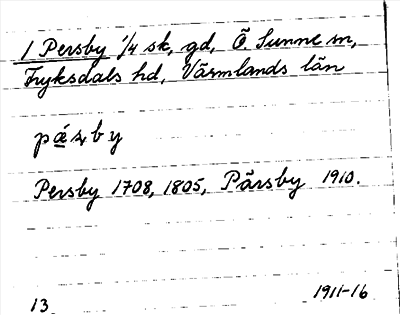 1 Persby 1/4 sk, gd, Ö. Sunne sn,
Fryksdals hd, Värmlands län
pǽrby
Persby 1708, 1805, Pärsby 1910.
13. 1911-16